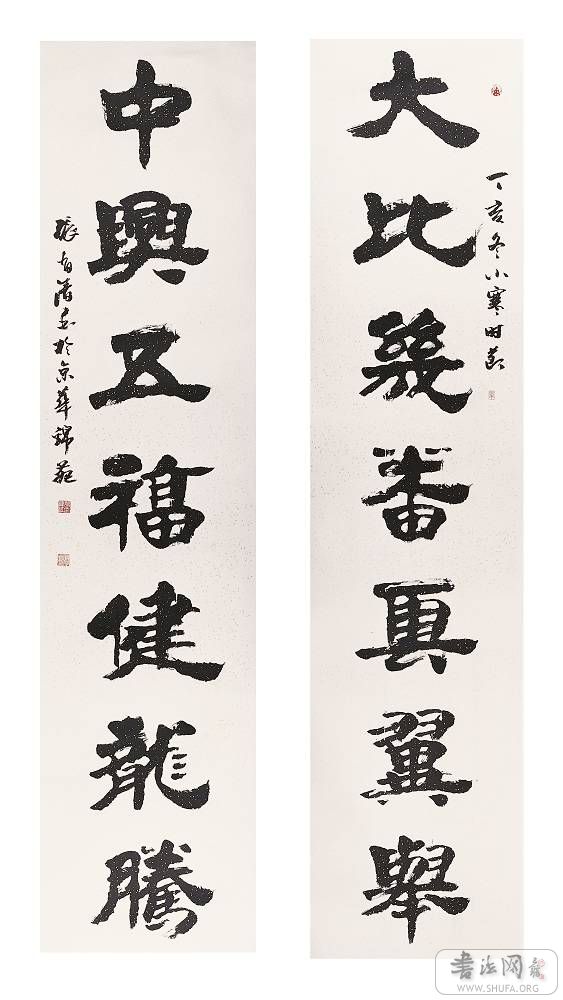 丁亥冬小寒时节
大比幾番真翼舉
中興五福健龍騰
張有清书於京華錦苑
書法网
WWW.SHUFA.ORG